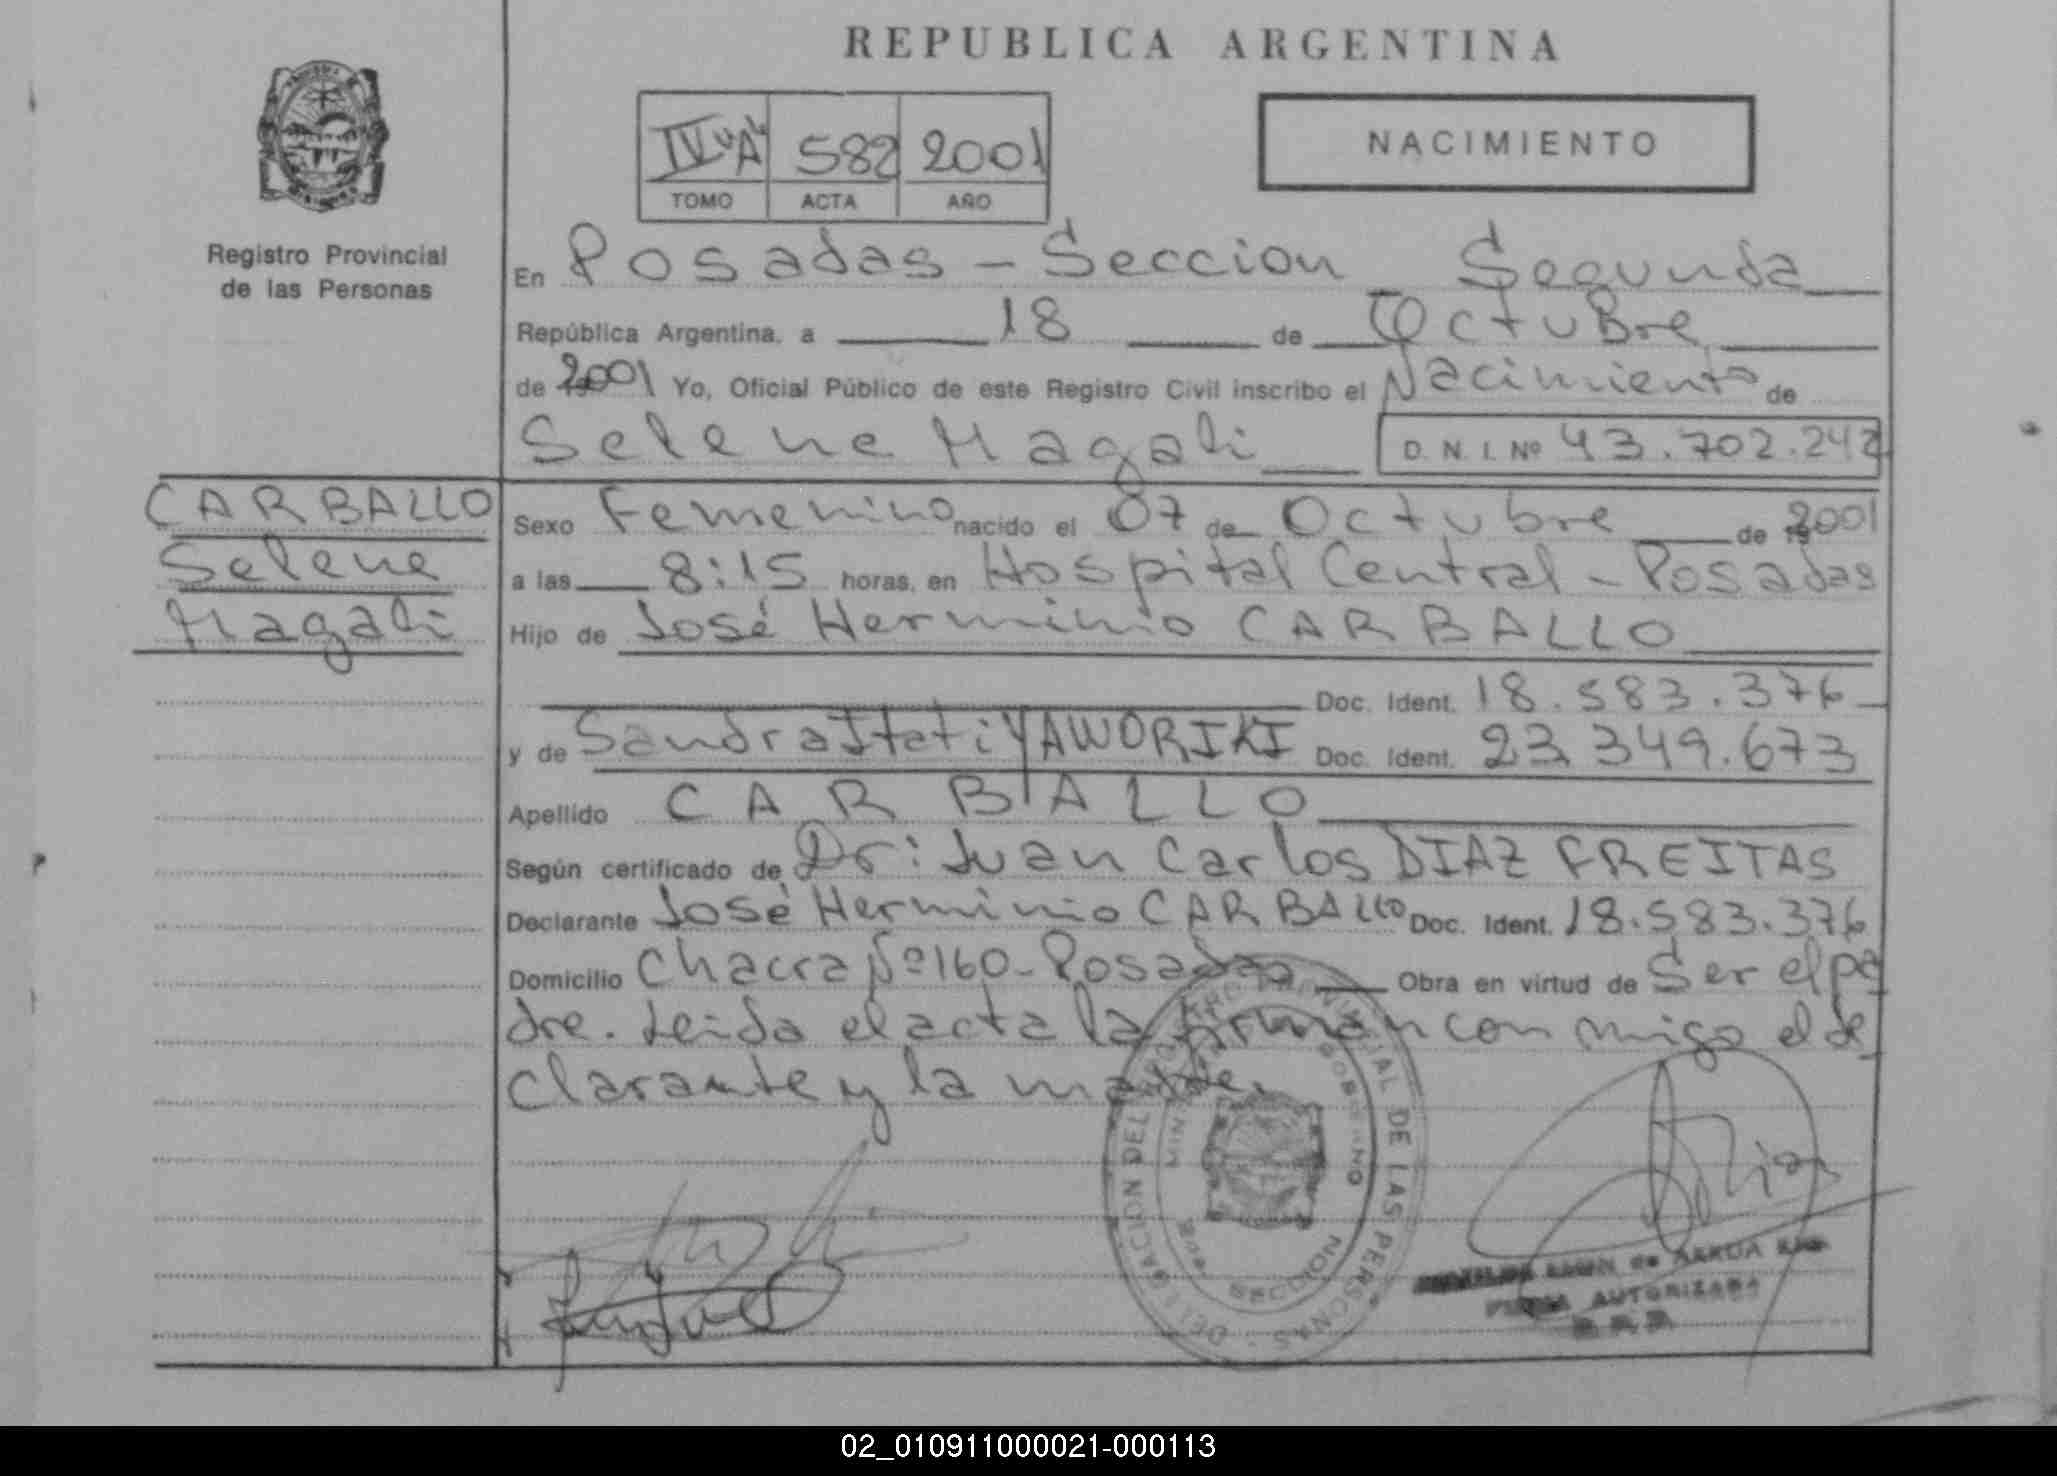 REPUBLICA ARGENTINA
IV "A" 582 2001
TOMO ACTA AÑO
NACIMIENTO
Registro Provincial
de las Personas
En Posadas - Seccion Segunda
República Argentina, a 18 de Octubre
de 2001 Yo, Oficial Público de este Registro Civil inscribo el Nacimiento de
Selene Magali D. N. I. Nº 43.702.242
CARBALLO
Selene
Magali
Sexo Femenino nacido el 07 de Octubre de 2001
a las 8:15 horas, en Hospital Central - Posadas
Hijo de José Herminio CARBALLO
Doc. Ident. 18.583.376
y de Sandra Itati YAWORIKI Doc. Ident. 23.349.673
Apellido CARBALLO
Según certificado de Dr: Juan Carlos DIAZ FREITAS
Declarante José Herminio CARBALLO Doc. Ident. 18.583.376
Domicilio Chacra Nº 160 - Posadas Obra en virtud de Ser el pa
dre. Leida el acta la firman con migo el de
clarante y la madre.
DELEGACION DEL REGISTRO PROVINCIAL DE LAS PERSONAS
GOBIERNO
SECCION
de ARRUA
FIRMA AUTORIZADA
02_010911000021-000113